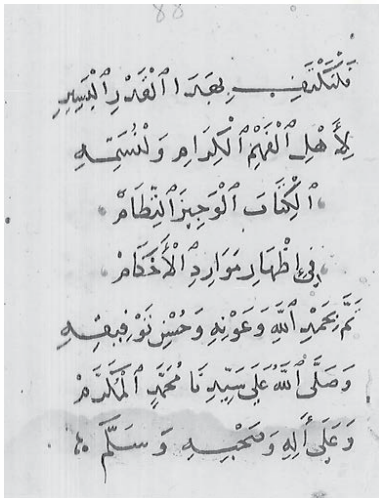 88
فَلْنَكْتَفِ بِهَذَا ٱلْقَدْرِ ٱلْيَسِيرِ
لِأَهْلِ ٱلْفَهْمِ ٱلْكِرَامِ وَلْنُسَمِّهِ
ٱلْكِتَابَ ٱلْوَجِيزَ ٱلنِّظَامْ
فِي إِظْهَارِ مَوَارِدِ ٱلْأَحْكَامْ
تَمَّ بِحَمْدِ ٱللَّهِ وَعَوْنِهِ وَحُسْنِ تَوْفِيقِهِ
وَصَلَّى ٱللَّهُ عَلَى سَيِّدِنَا مُحَمَّدِ ٱلْمُكَرَّمْ
وَعَلَى أَلِهِ وَصَحْبِهِ وَسَلَّمَ